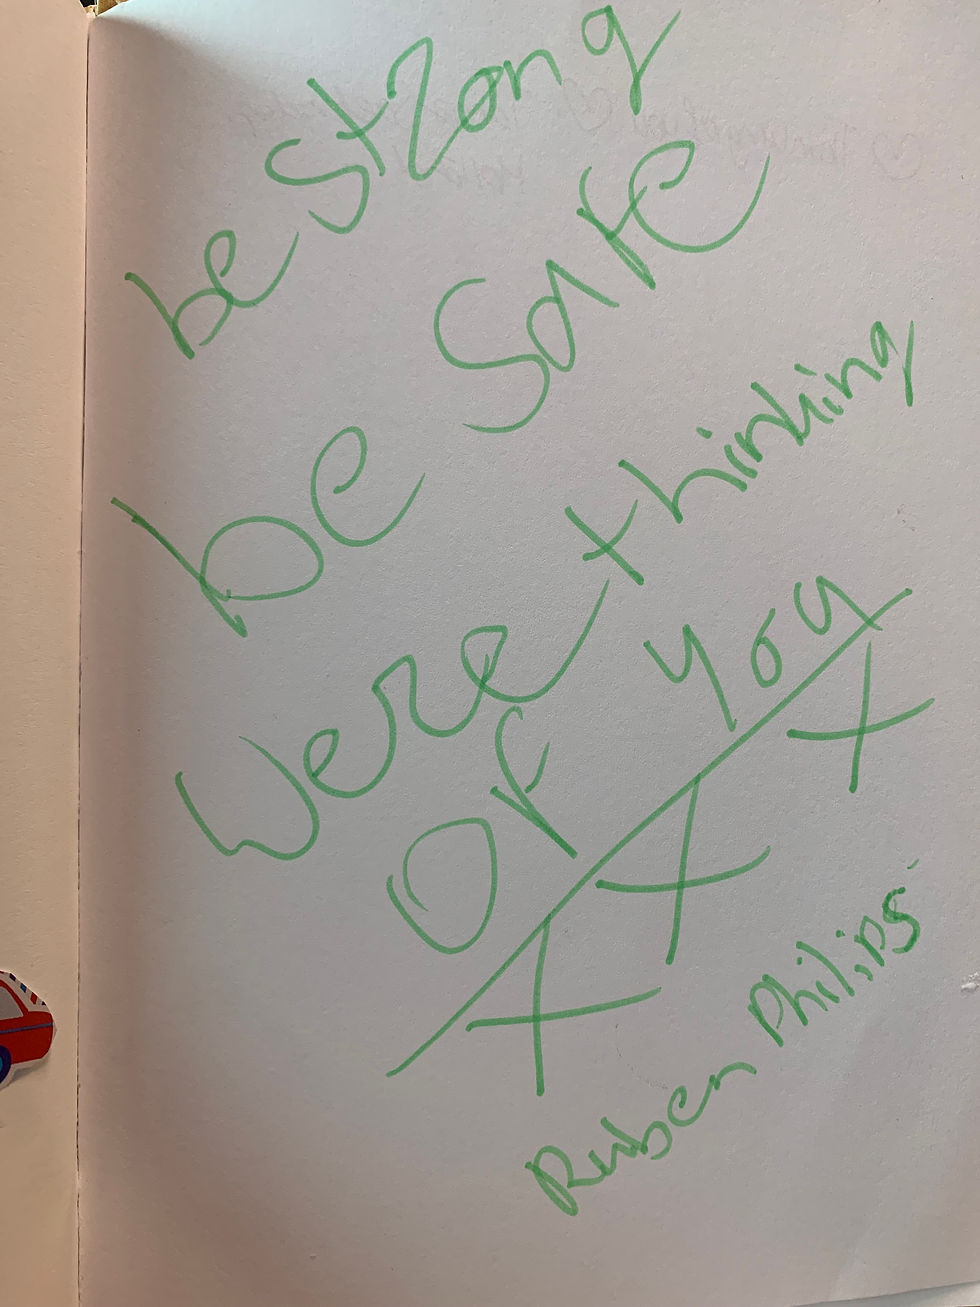 be strong
be safe
were thinking
of you
X X X
Ruben Philips